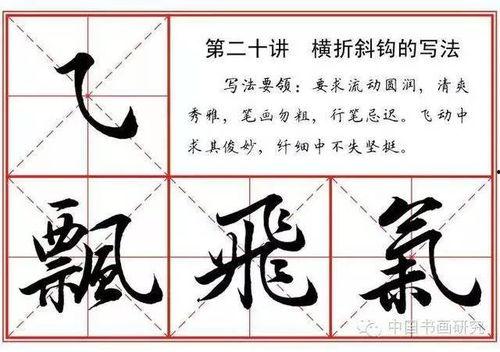 第二十讲 横折斜钩的写法
写法要领：要求流动圆润，清爽
秀雅，笔画勿粗，行笔忌迟。飞动中
求其俊妙，纤细中不失坚挺。
飘 飛 氣
中国书画研究